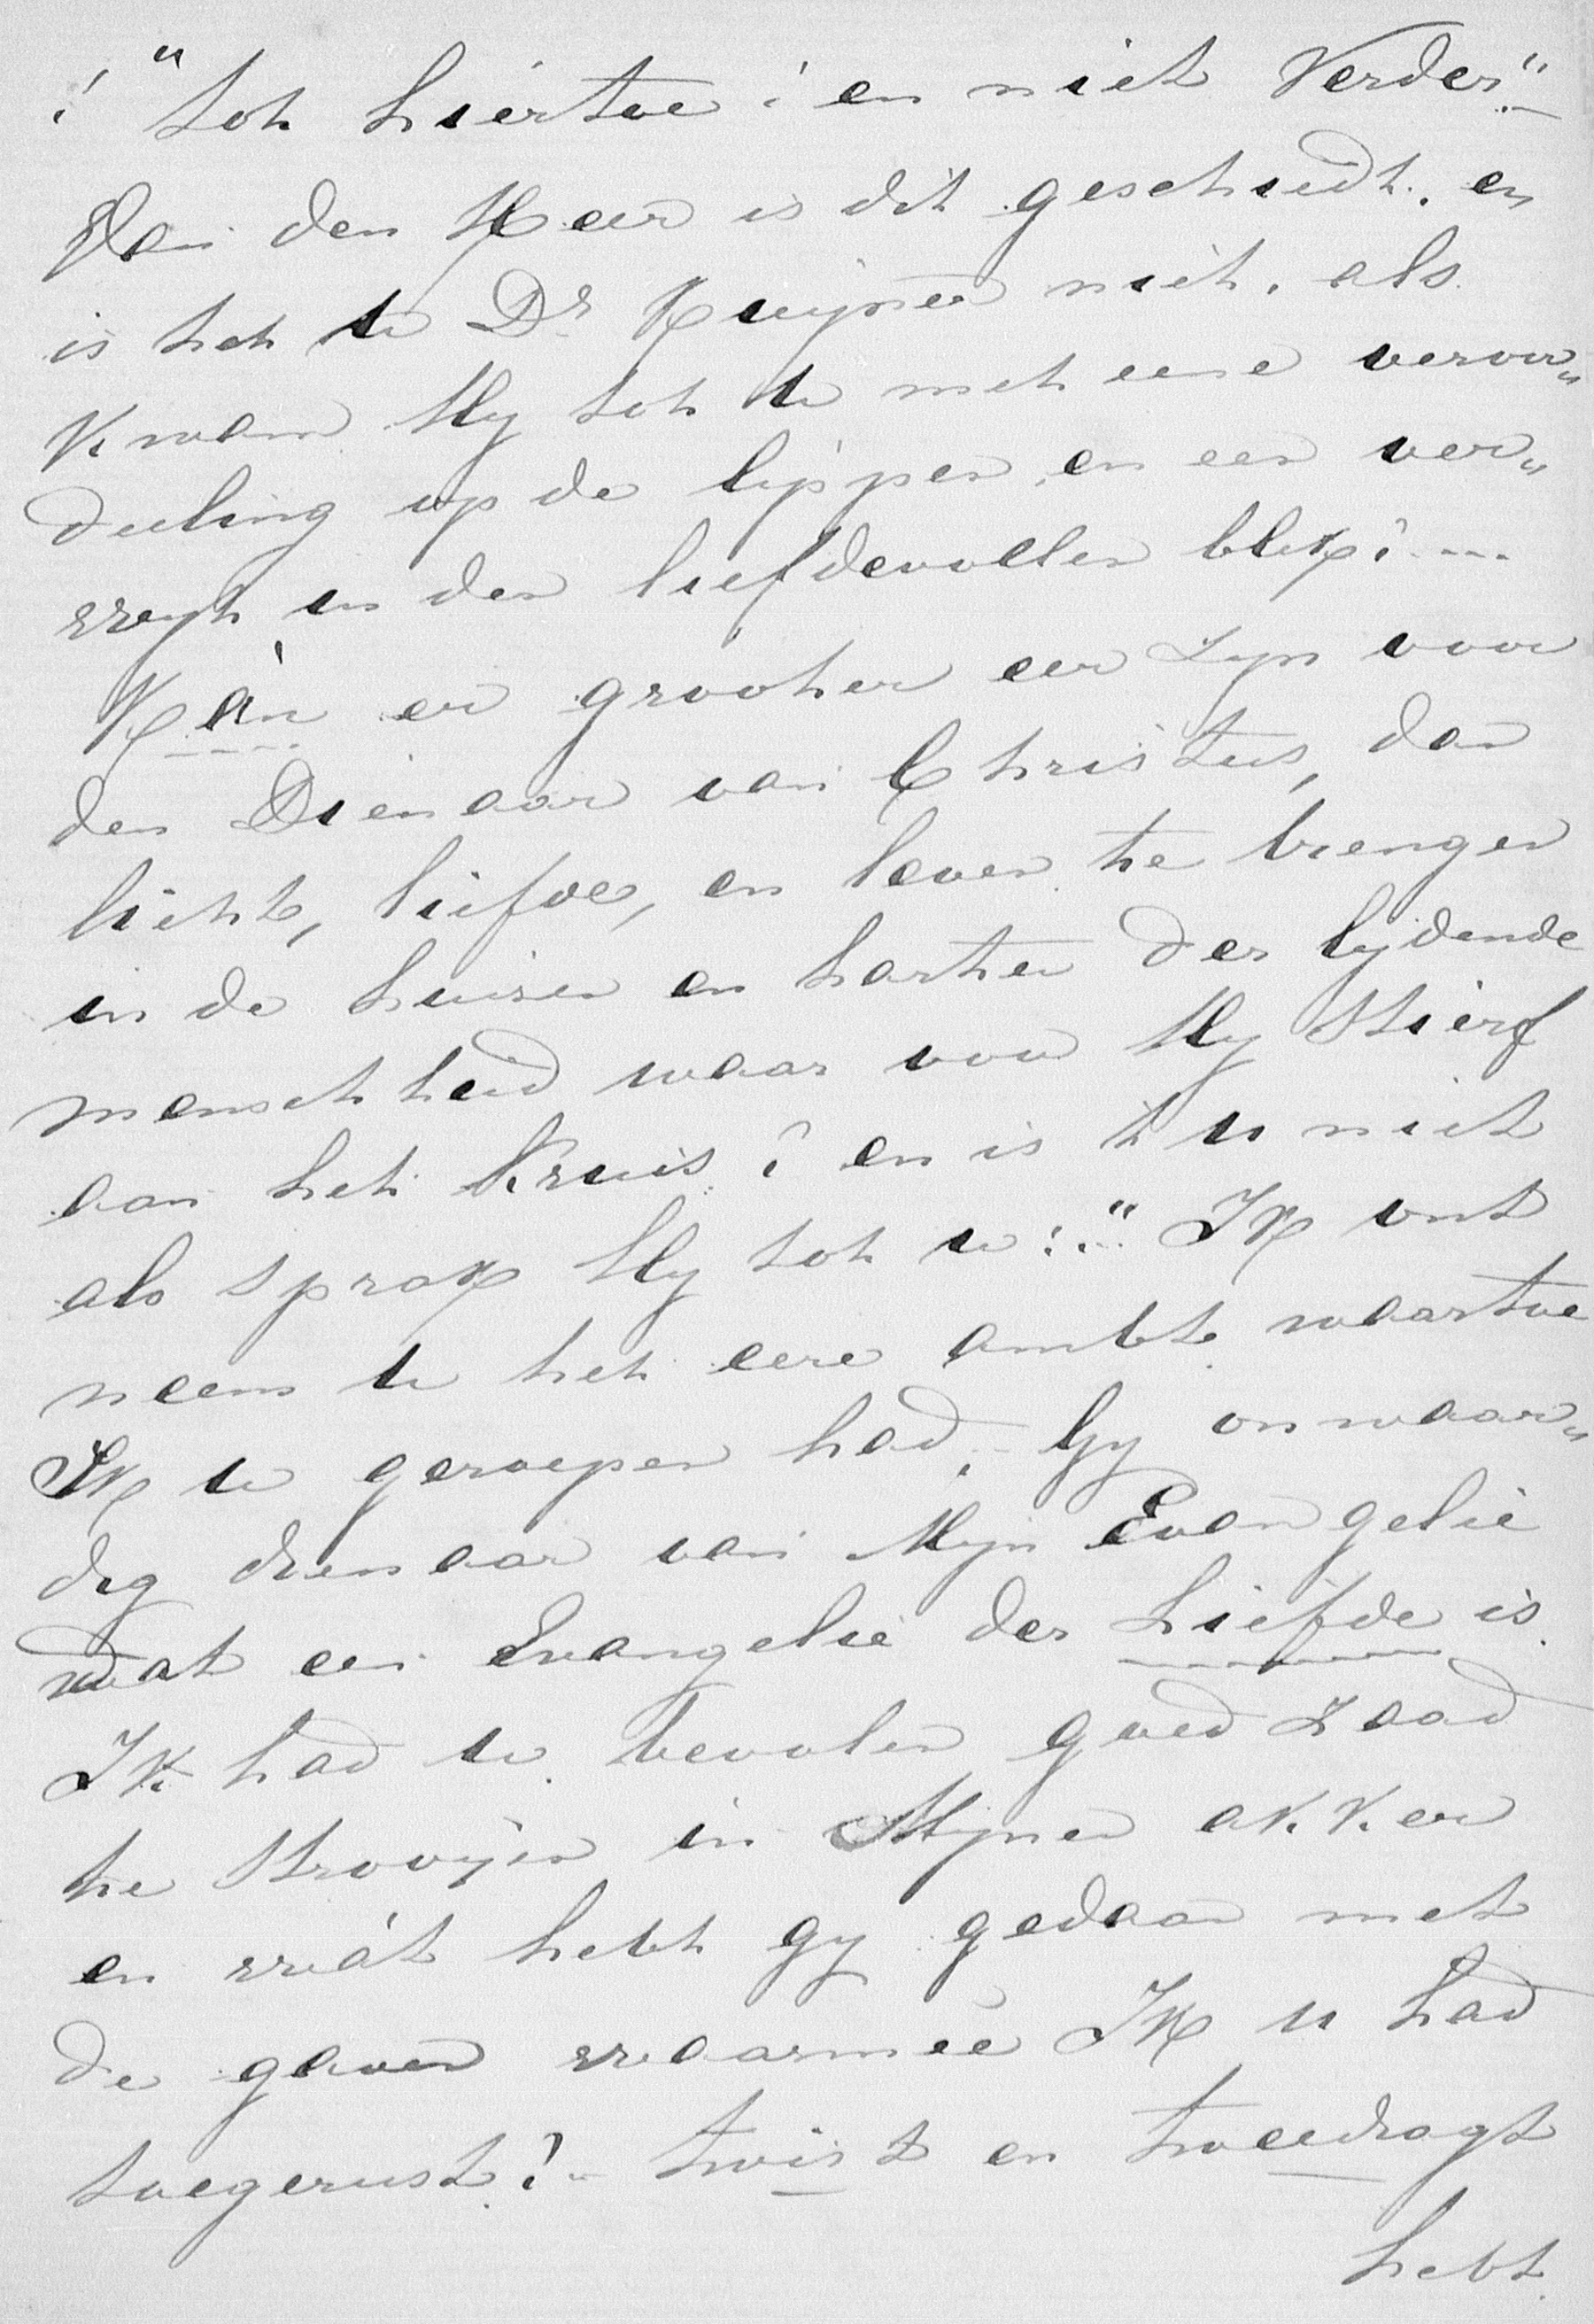 ! "tot hiertoe! en niet Verder"
Van den Heer is dit geschiedt. en
is het U Dr Kuijper niet. als
kwam Hy tot U met eene veroor„
deeling op de lippen, en een ver„
wyt in den liefdevollen blik? ....
Kàn er grooter eer zyn voor
den Dienaar van Christus, dan
licht, liefde, en leven te brengen
in de huizen en harten der lydende
menschheid waar voor Hy Stierf
aan het Kruis? en is 't u niet
als sprak Hy tot u: " Ik ont
neem U het eere ambt waartoe
Ik U geroepen had, Gy onwaar„
dig dienaar van Myn Evangelie
wat een Evangelie der Liefde is.
Ik had U bevolen goed zaad
te Strooijen in Mynen akker
en wàt hebt gy gedaan met
de gaven waarmeê Ik u had
toegerust? - twist en tweedragt
hebt